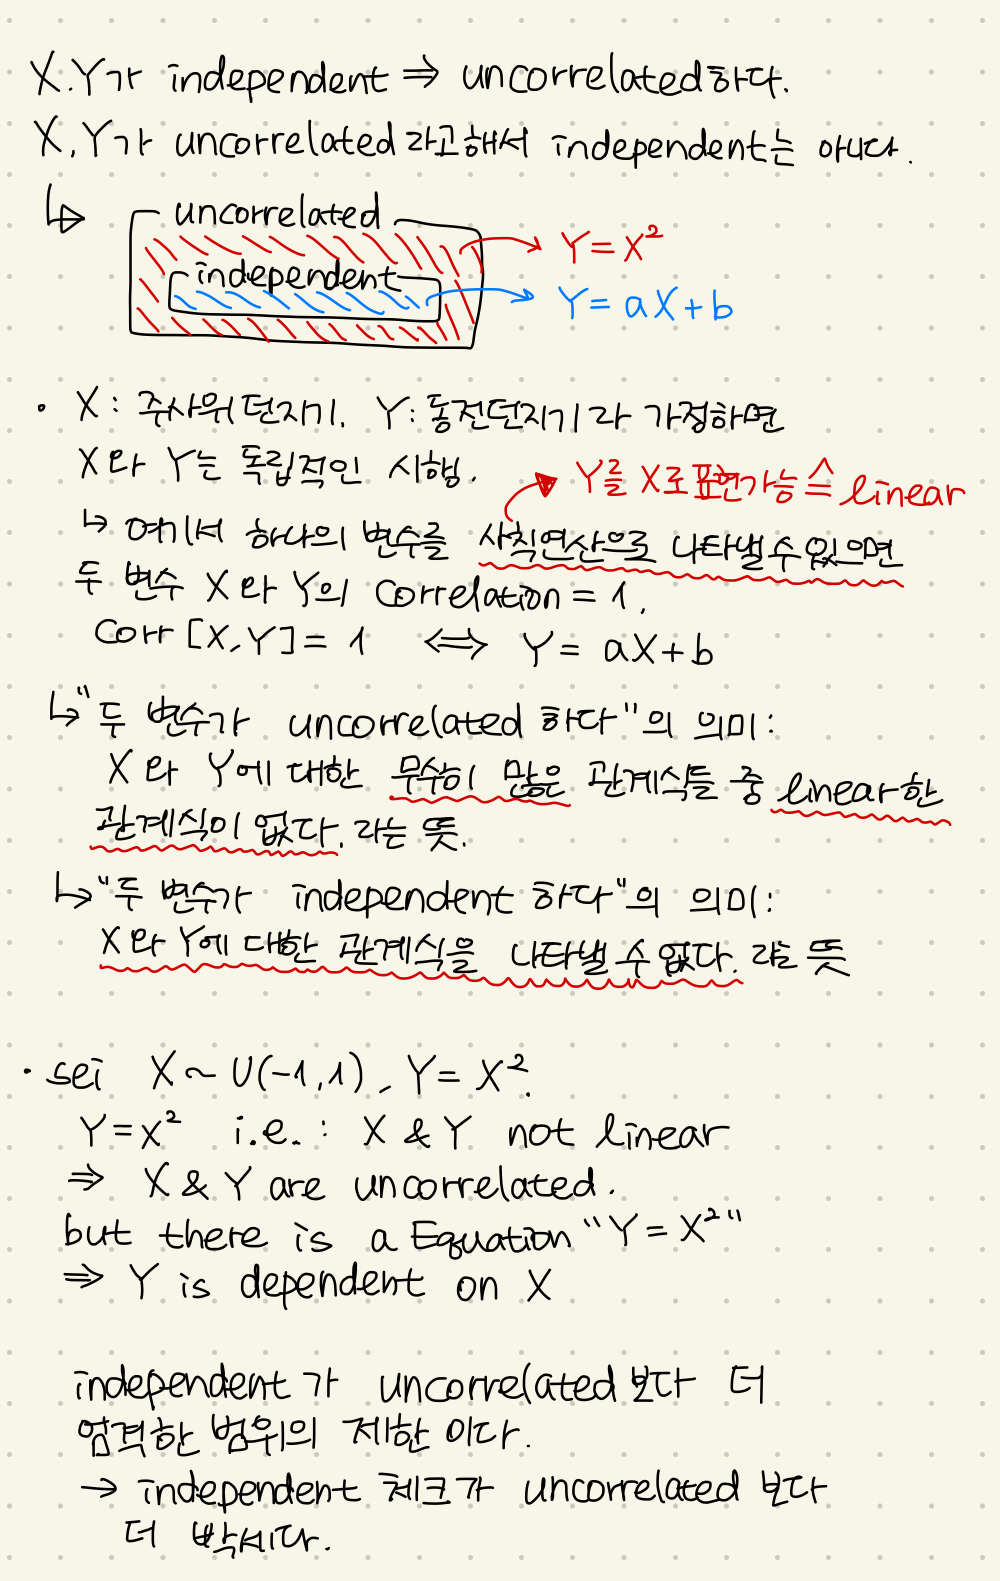 X.Y가 independent ⇒ uncorrelated하다.
X, Y가 uncorrelated 라고해서 independent는 아니다.
↳ uncorrelated
Y = X²
independent
Y = aX+b
• X : 주사위 던지기. Y : 동전던지기 라 가정하면
X 와 Y는 독립적인 시행.
Y를 X로 표현가능 ≙ linear
↳ 여기서 하나의 변수를 사칙연산으로 나타낼 수 있으면
두 변수 X 와 Y의 Correlation = 1.
Corr [X, Y] = 1 ⟺ Y = aX+b
↳ "두 변수가 uncorrelated 하다"의 의미 :
X 와 Y에 대한 무수히 많은 관계식들 중 linear한
관계식이 없다. 라는 뜻.
↳ "두 변수가 independent 하다"의 의미 :
X 와 Y에 대한 관계식을 나타낼 수 없다. 라는 뜻
• sei X ~ U(-1,1), Y = X².
Y = x² i.e. : X & Y not linear
⇒ X & Y are uncorrelated.
but there is a Equation "Y = X²"
⇒ Y is dependent on X
independent 가 uncorrelated 보다 더
엄격한 범위의 제한 이다.
→ independent 체크가 uncorrelated 보다
더 빡세다.